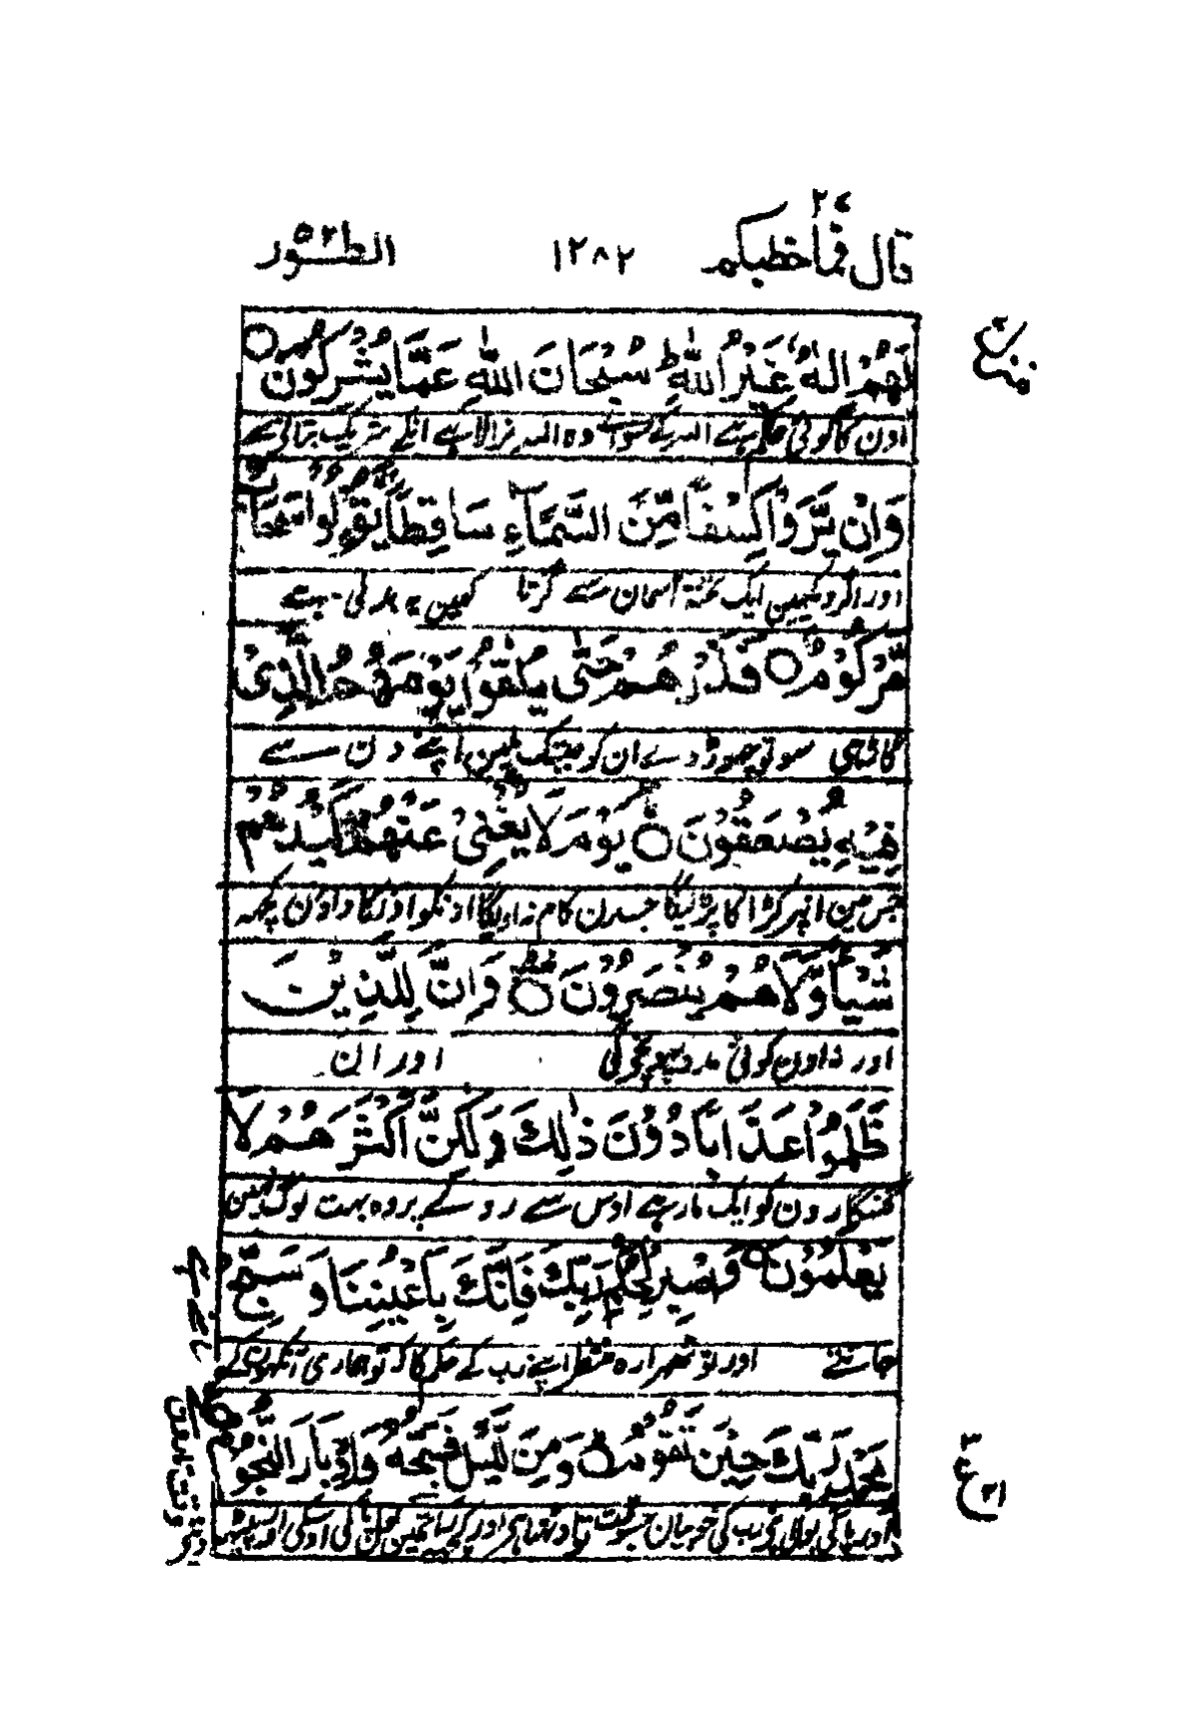 قال فماخطبکم ۲۷
۱۲۸۲
الطور ۵۲
لَهُمْ اِلٰهٌ غَيْرُ اللّٰهِ ؕ سُبْحَانَ اللّٰهِ عَمَّا يُشْرِكُوْنَ ○
اون کا کوئی حاکم ہے اللہ کے سوائے وہ اللہ نرالا ہے انکے شریک بتانے سے
وَاِنْ يَّرَوْا كِسْفًا مِّنَ السَّمَآءِ سَاقِطًا يَّقُوْلُوْا سَحَابٌ
اور اگر دیکھین ایک تختہ آسمان سے گرتا کہین یہ بدلی ہے
مَّرْكُوْمٌ ○ فَذَرْهُمْ حَتّٰى يُلٰقُوْا يَوْمَهُمُ الَّذِىْ
گاڑھی سو تو چھوڑ دے ان کو جبتک ملین اپنے دن سے
فِيْهِ يُصْعَقُوْنَ ○ يَوْمَ لَا يُغْنِىْ عَنْهُمْ كَيْدُهُمْ
جس مین انپر کڑاکا پڑیگا جسدن کام نہ آویگا اونکو اونکا داؤن کچھہ
شَيْـًٔا وَّلَا هُمْ يُنْصَرُوْنَ ○ وَاِنَّ لِلَّذِيْنَ
اور نہ اون کوئی مدد پہونچیگی اور ان
ظَلَمُوْا عَذَابًا دُوْنَ ذٰلِكَ وَلٰكِنَّ اَكْثَرَهُمْ لَا
گنہگارون کو ایک مار ہے اوس سے ورے پر وہ بہت لوگ نہین
يَعْلَمُوْنَ ○ وَاصْبِرْ لِحُكْمِ رَبِّكَ فَاِنَّكَ بِاَعْيُنِنَا وَسَبِّحْ
جانتے اور تو ٹھہرا رہ منتظر اپنے رب کے حکم کا کہ تو ہماری آنکھون کے
بِحَمْدِ رَبِّكَ حِيْنَ تَقُوْمُ ○ وَمِنَ الَّيْلِ فَسَبِّحْهُ وَاِدْبَارَ النُّجُوْمِ ○
اور پاکی بول اپنے رب کی خوبیان جسوقت تو اوٹھتا ہے اور کچھہ رات مین بول پاکی اوسکی اور
سامنے ہے
ع ۲۱